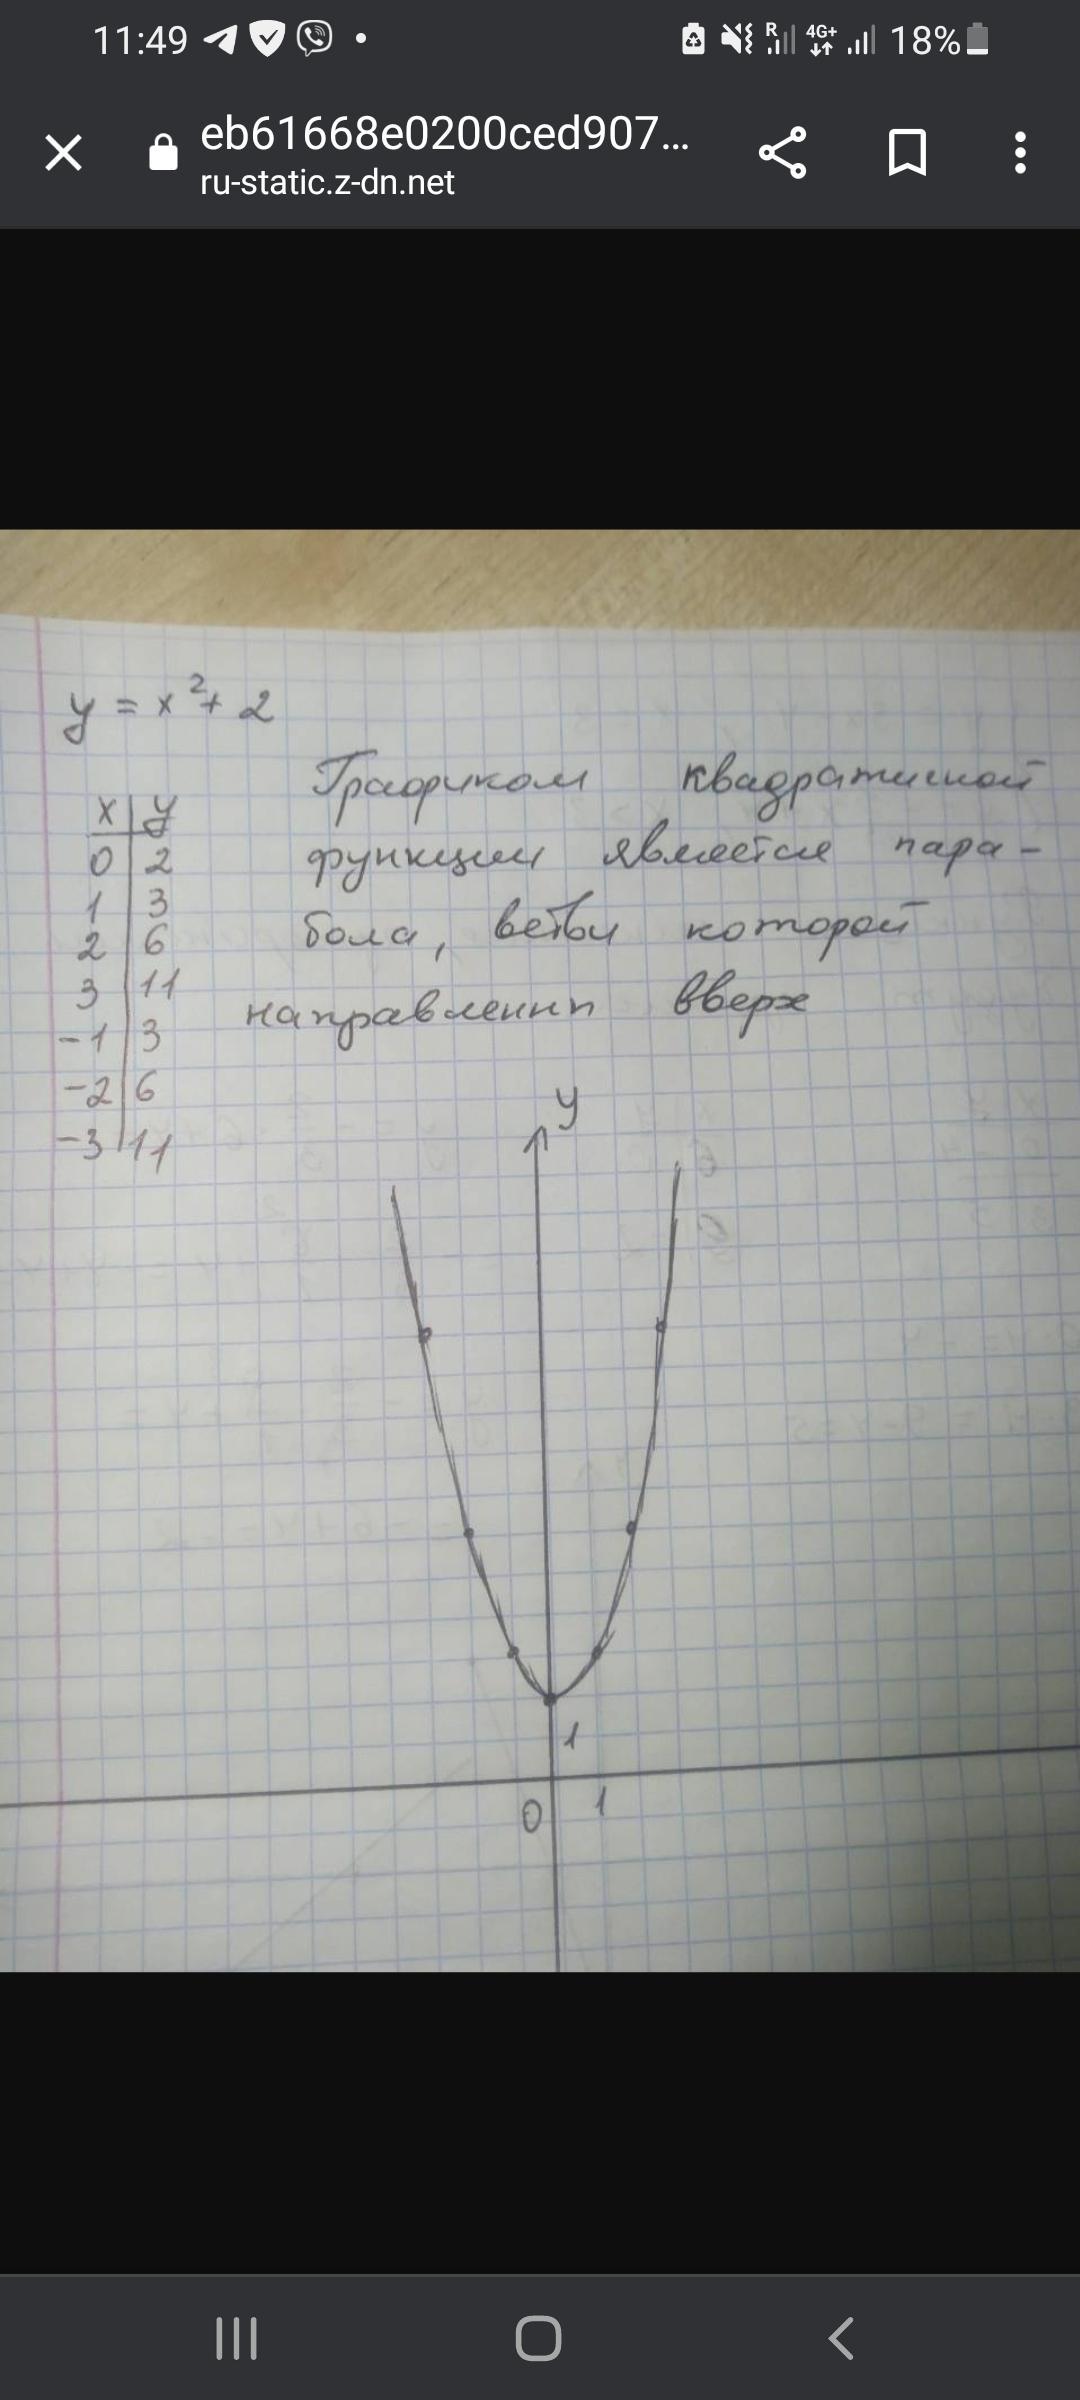 11:49
R 4G+ 18%
eb61668e0200ced907...
ru-static.z-dn.net
y = x² + 2
Графиком квадратичной
x | y
0 | 2
функции является пара-
1 | 3
2 | 6
бола, ветви которой
3 | 11
направленны вверх
-1 | 3
-2 | 6
-3 | 11
y
1
0 1